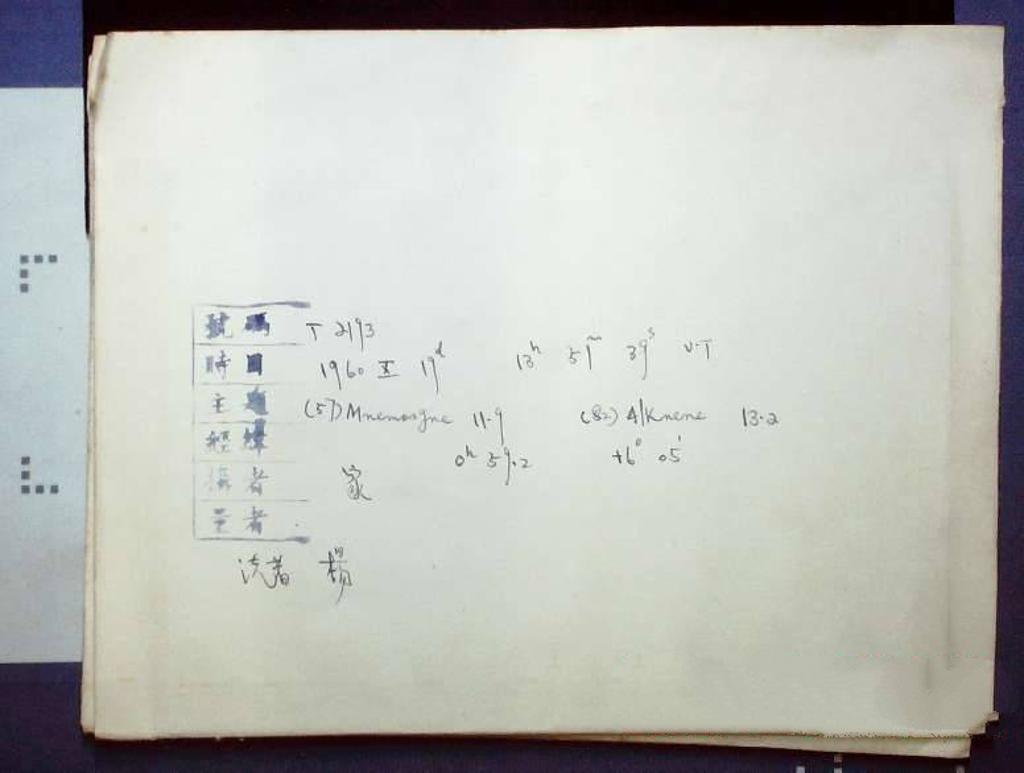 號碼 T 2193
時日 1960 X 19ᵈ 13ʰ 51ᵐ 39ˢ U.T
主題 (57) Mnemosyne 11.9 (82) Alkmene 13.2
經緯 0ʰ 59.2 +6° 05'
攝者 家
量者
洗者 楊